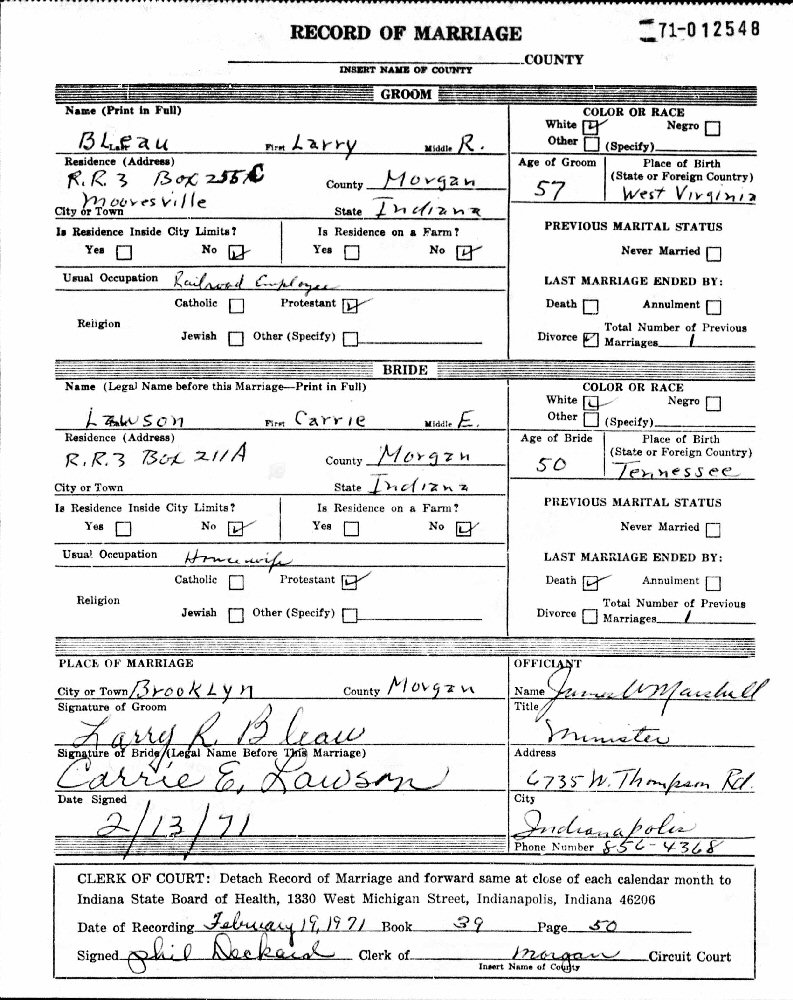 RECORD OF MARRIAGE
71-012548
COUNTY
INSERT NAME OF COUNTY
GROOM
Name (Print in Full)
BLeau Larry R.
Last First Middle
COLOR OR RACE
White Negro
Other (Specify)
Residence (Address)
R.R. 3 Box County Morgan
Mooresville
City or Town State Indiana
Age of Groom 57
Place of Birth
(State or Foreign Country)
West Virginia
Is Residence Inside City Limits?
Yes No
Is Residence on a Farm?
Yes No
PREVIOUS MARITAL STATUS
Never Married
Usual Occupation Railroad Employee
LAST MARRIAGE ENDED BY:
Death Annulment
Divorce Total Number of Previous
Marriages 1
Religion
Catholic Protestant
Jewish Other (Specify)
BRIDE
Name (Legal Name before this Marriage—Print in Full)
Lawson First Carrie Middle E.
COLOR OR RACE
White Negro
Other (Specify)
Residence (Address)
R.R.3 Box 211A County Morgan
City or Town State Indiana
Age of Bride 50
Place of Birth
(State or Foreign Country)
Tennessee
Is Residence Inside City Limits?
Yes No
Is Residence on a Farm?
Yes No
PREVIOUS MARITAL STATUS
Never Married
Usual Occupation Housewife
LAST MARRIAGE ENDED BY:
Death Annulment
Divorce Total Number of Previous
Marriages 1
Religion
Catholic Protestant
Jewish Other (Specify)
PLACE OF MARRIAGE
City or Town BrookLyn County Morgan
Signature of Groom
Larry R. Bleau
Signature of Bride (Legal Name Before This Marriage)
Carrie E. Lawson
Date Signed
2/13/71
OFFICIANT
Name James W Marshall
Title
Minister
Address
6735 W. Thompson Rd.
City
Indianapolis
Phone Number 856-4368
CLERK OF COURT: Detach Record of Marriage and forward same at close of each calendar month to
Indiana State Board of Health, 1330 West Michigan Street, Indianapolis, Indiana 46206
Date of Recording February 19, 1971 Book 39 Page 50
Signed Phil Deckard Clerk of Morgan Circuit Court
Insert Name of County